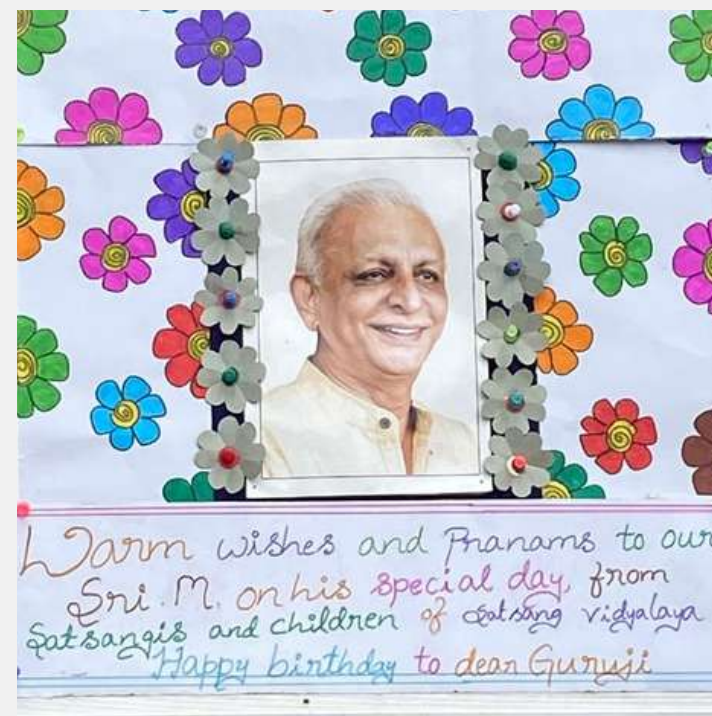 Warm wishes and Pranams to our
Sri. M. on his special day, from
Satsangis and children of Satsang vidyalaya
Happy birthday to dear Guruji